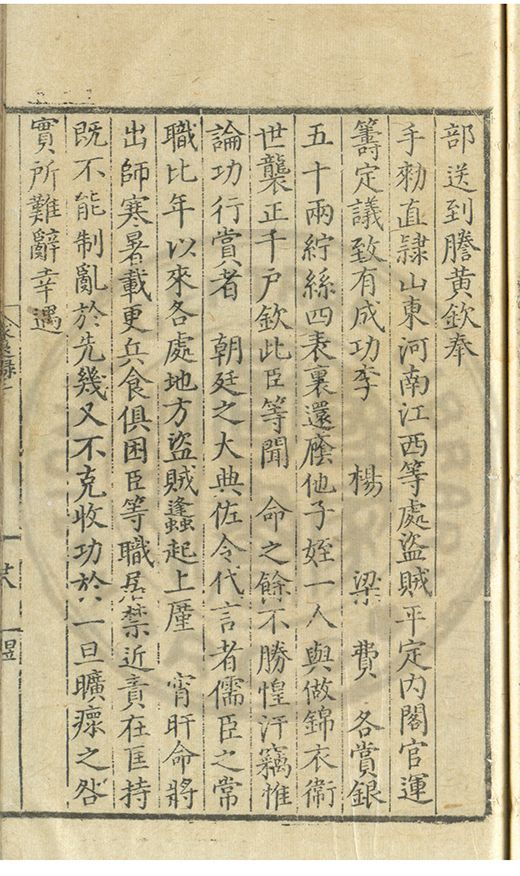 部送到謄黃欽奉
手勑直隸山東河南江西等處盜賊平定內閣官運
籌定議致有成功李 楊 梁 費 各賞銀
五十兩紵絲四表裏還廕他子姪一人與做錦衣衛
世襲正千戶欽此臣等聞 命之餘不勝惶汗竊惟
論功行賞者 朝廷之大典佐令代言者儒臣之常
職比年以來各處地方盜賊蠭起上廑 宵旰命將
出師寒暑載更兵食俱困臣等職居禁近責在匡持
既不能制亂於先幾又不克收功於一旦曠瘝之咎
實所難辭幸遇